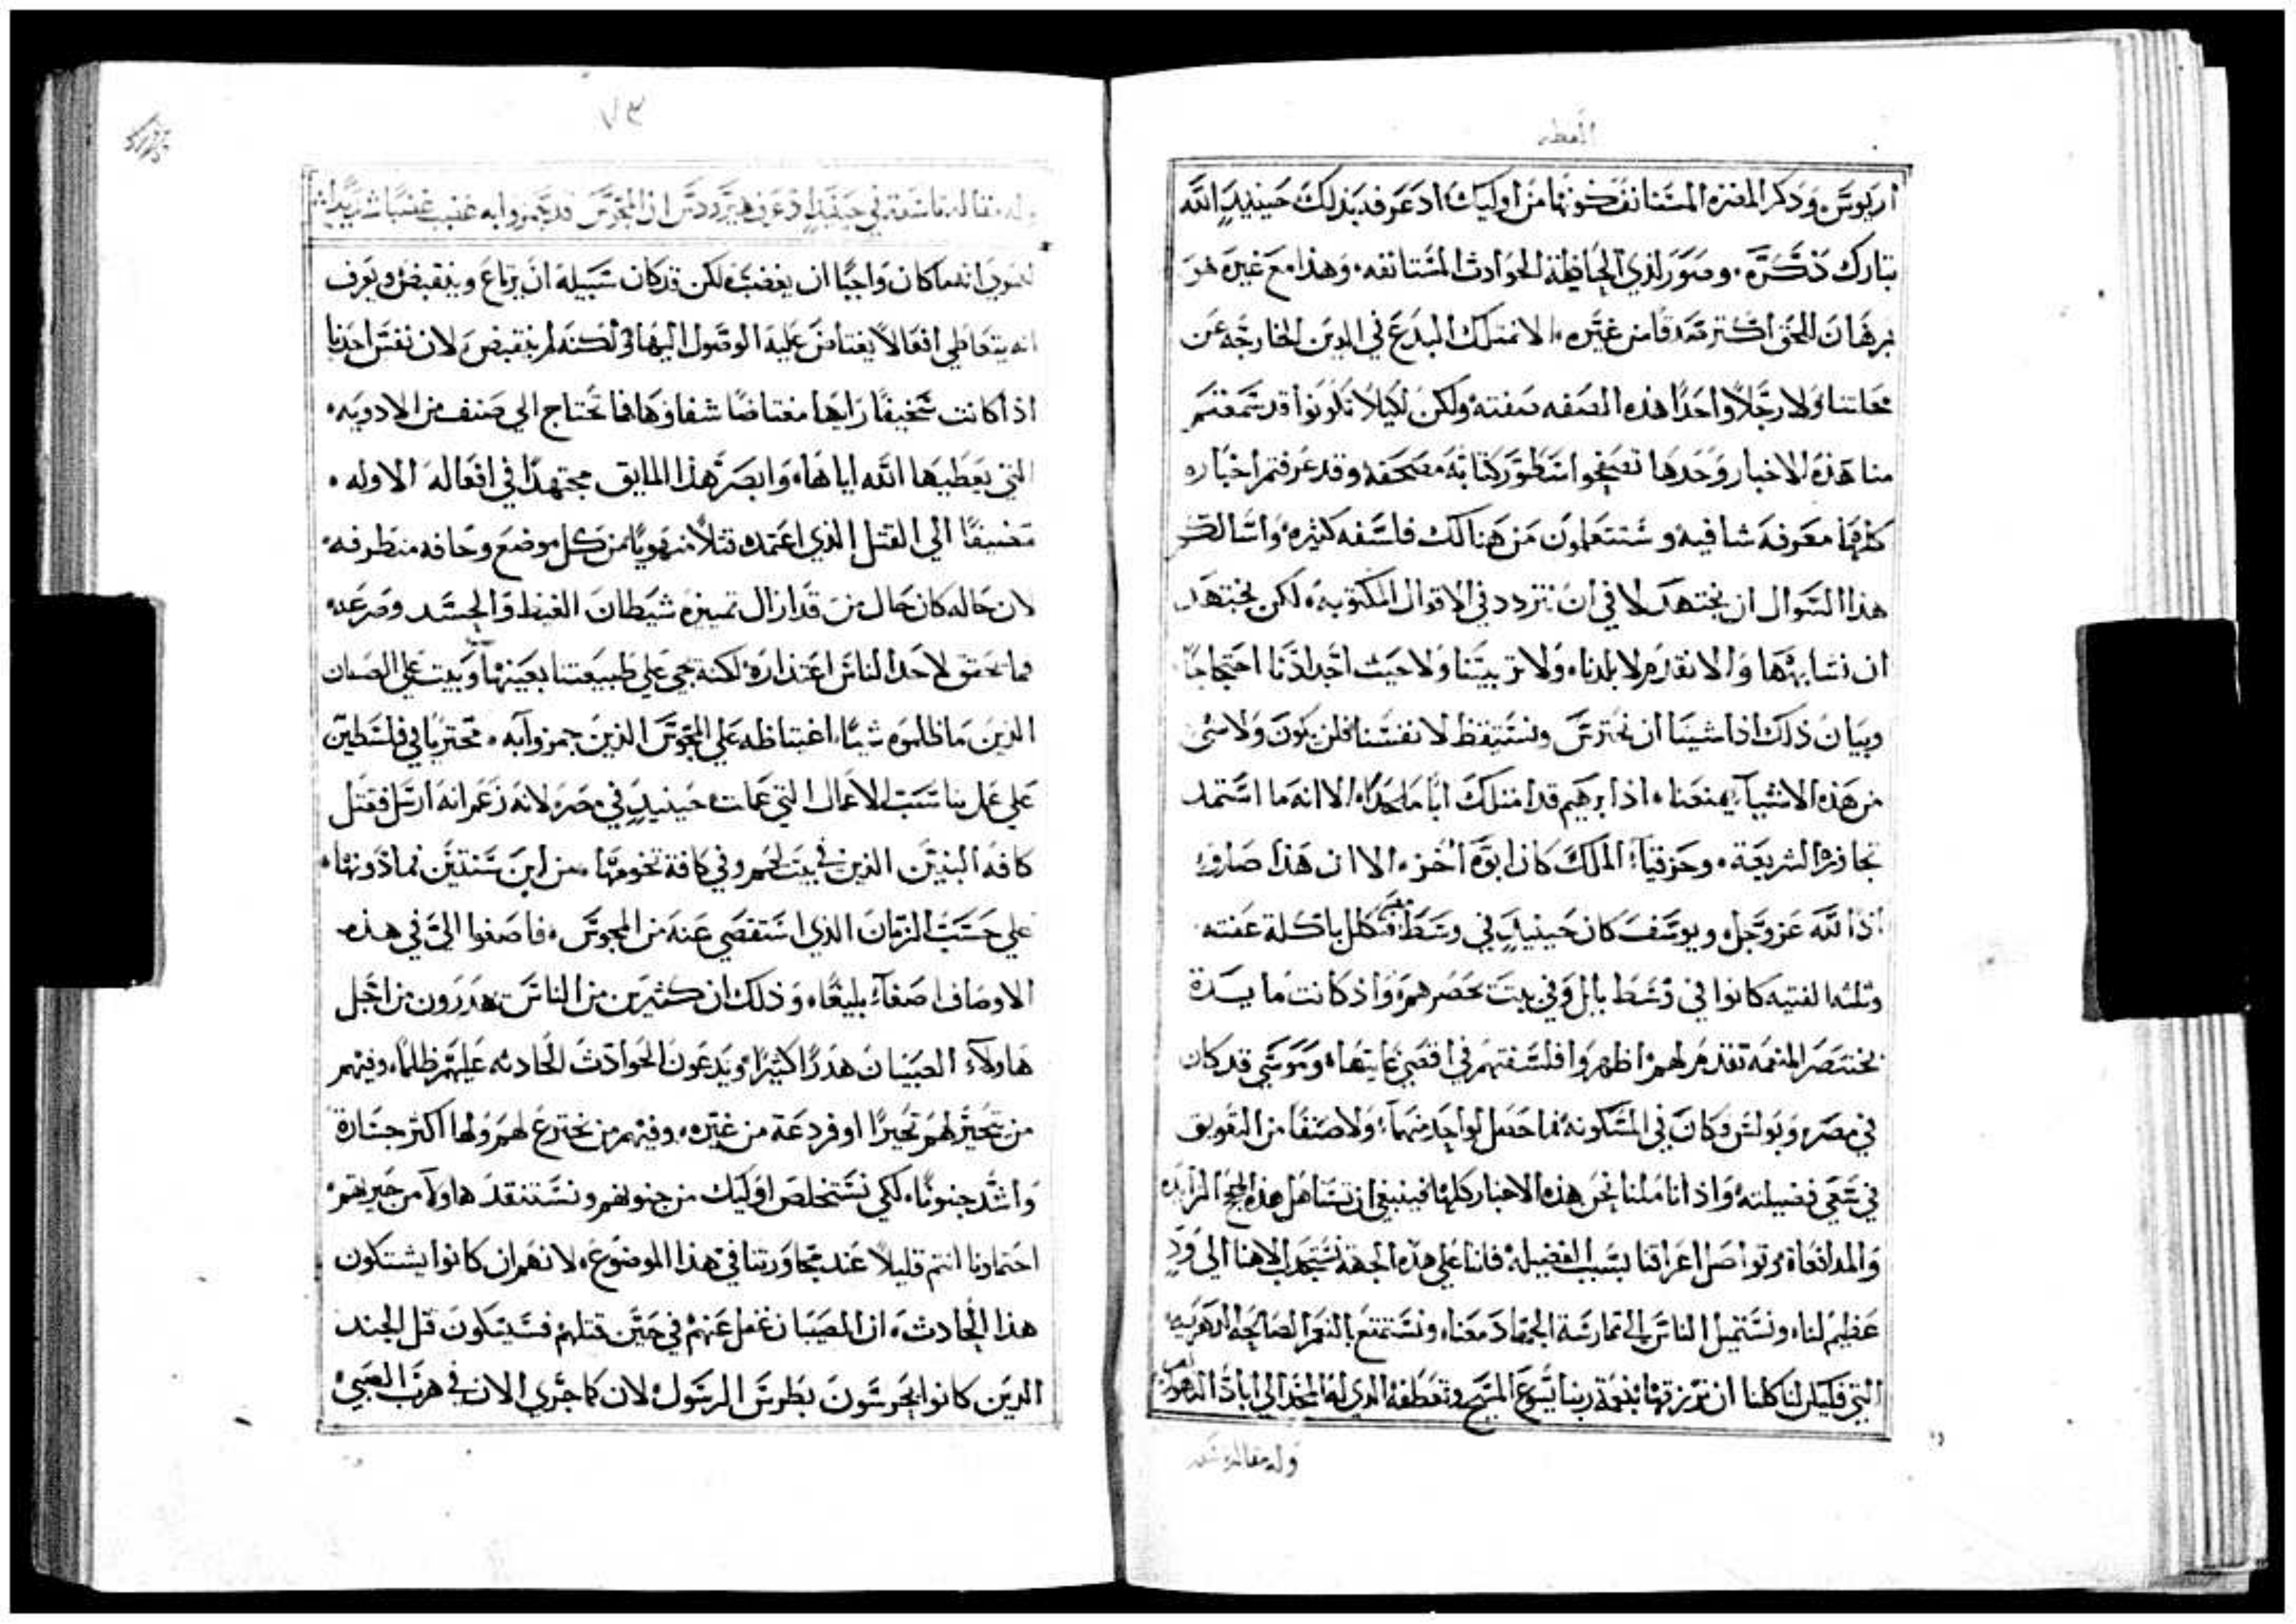 العظه
اريوس وذكر المستانف كونها من اوليك اذ عرف بذلك حينيذٍ الله
تبارك ذكره وصور لذي الحافظة الحوادث المستانفه وهذا مع غيره هو
برهان الحق اكثر من غيره لا نمتلك البدع في الدين الخارجه عن
ولا رجلاً واحدًا هذه الصفه صفته ولكن لكيلا تكونوا قد سمعتم
منا هذه الاخبار وحدها تصفحوا سطور كتابة مصحفه وقد عرفتم اخباره
كلها معرفه شافيه وستتعلمون من هنالك فلسفه كثيره واسالكم
هذا السوال ان نجتهد لا في ان نتردد في الاقوال المكتوبه لكن نجتهد
ان نشابهها والا نقدم لا بلدنا ولا تربيتنا ولا خبث اجدادنا احتجاجًا
وبيان ذلك اذا شينا ان نحترس ونستيقظ لانفسنا فلن يكون ولا شي
من هذه الاشيآ يمنعنا اذ ابرهيم قد امتلك ابًا ملحدًا الا انه ما استمد
الشريعة وحزقيآ الملك كان ابوه اخز الا ان هذا صار
اذًا لله عز وجل ويوسف كان حينيذٍ في وسط مصر فتكلل باكلة عفته
وثلثه الفتيه كانوا في وسط بابل وفي بيت بختنصرهم واذ كانت مايدة
بختنصر المنعمه تقدم لهم اظهروا فلسفتهم في اقصي غايتها وموسي قد كان
في مصر وبولس فكان في المسكونه فما حصل لواحد منهما ولا صنفًا من التعويق
في سعي فضيلته واذ تاملنا نحن هذه الاخبار كلها فينبغي ان نتساهل هذه الحجج الزايده
والمدافعاه ونواصل اعراقنا بسبب الفضيله فاننا علي هذه الجهة نستجذب الاهنا الي ودٍ
عظيم لنا ونستميل الناس الي ممارسة الجهاد معنا ونستمتع بالنعم الصالحه الدهريه
التي فليكن لنا كلنا ان نرزقها بنعمة ربنا يسوع المسيح وتعطفه الذي له المجد الي اباد الدهور امين
وله مقاله تاسعه
٧٣
وله مقاله تاسعه في حينيذٍ اذ عرف هيرودس ان المجوس قد تهزوا به غضب غضبًا شديدًا
لعمري انه ما كان واجبًا ان يغضب لكن قد كان سبيله ان يرتاع وينقبض ويعرف
انه يتعاطي افعالاً يعتاض عليه الوصول اليها لكنه لم ينقبض لان نفس احدنا
اذا كانت سخيفًا رايها معتاضًا شفاوها فما تحتاج الي صنف من الادويه
التي يعطيها الله اياها وابصر هذا المايق مجتهدًا في افعاله الاوله
مضيفًا الي القتل الذي اعتمده قتلاً منهويًا من كل موضع وحافه منطرفه
لان حاله كان حال من قد ازال تمييزه شيطان الغيظ والحسد وصرعه
فما تحقق لاحد الناس اعتذاره لكنه جن علي طبيعتنا بعينها ويبث علي الصبيان
الذين ما ظلموه شيًا اغتياظه علي المجوس الذين تهزوا به مجتريًا في فلسطين
علي عمل يناسب الاعمال التي عملت حينيذٍ في مصر لانه زعم انه ارسل فقتل
كافة البنين الذين في بيت لحم وفي كافة تخومها من ابن سنتين فما دونها
علي حسب الزمان الذي استقصي عنه من المجوس فاصغوا الي في هذه
الاوصاف اصغآ بليغًا وذلك ان كثيرين من الناس يهدرون من اجل
هاولآء الصبيان هدرًا كثيرًا ويدعون الحوادث الحادثه عليهم ظلمًا وفيهم
من يتحير لهم تحيرًا اوفر دعة من غيره وفيهم من يخترع لهم ولها اكثر جسارة
واشد جنونًا لكي نستخلص اوليك من جنونهم ونستنقذ هاولآ من حيرتهم
احتملونا انتم قليلاً عند محاورتنا في هذا الموضوع لانهم ان كانوا يشتكون
هذا الحادث ان الصبيان غفل عنهم في حين قتلهم فسيشكون قتل الجند
الذين كانوا يحرسون بطرس الرسول لان كما جري الان في هرب الصبي